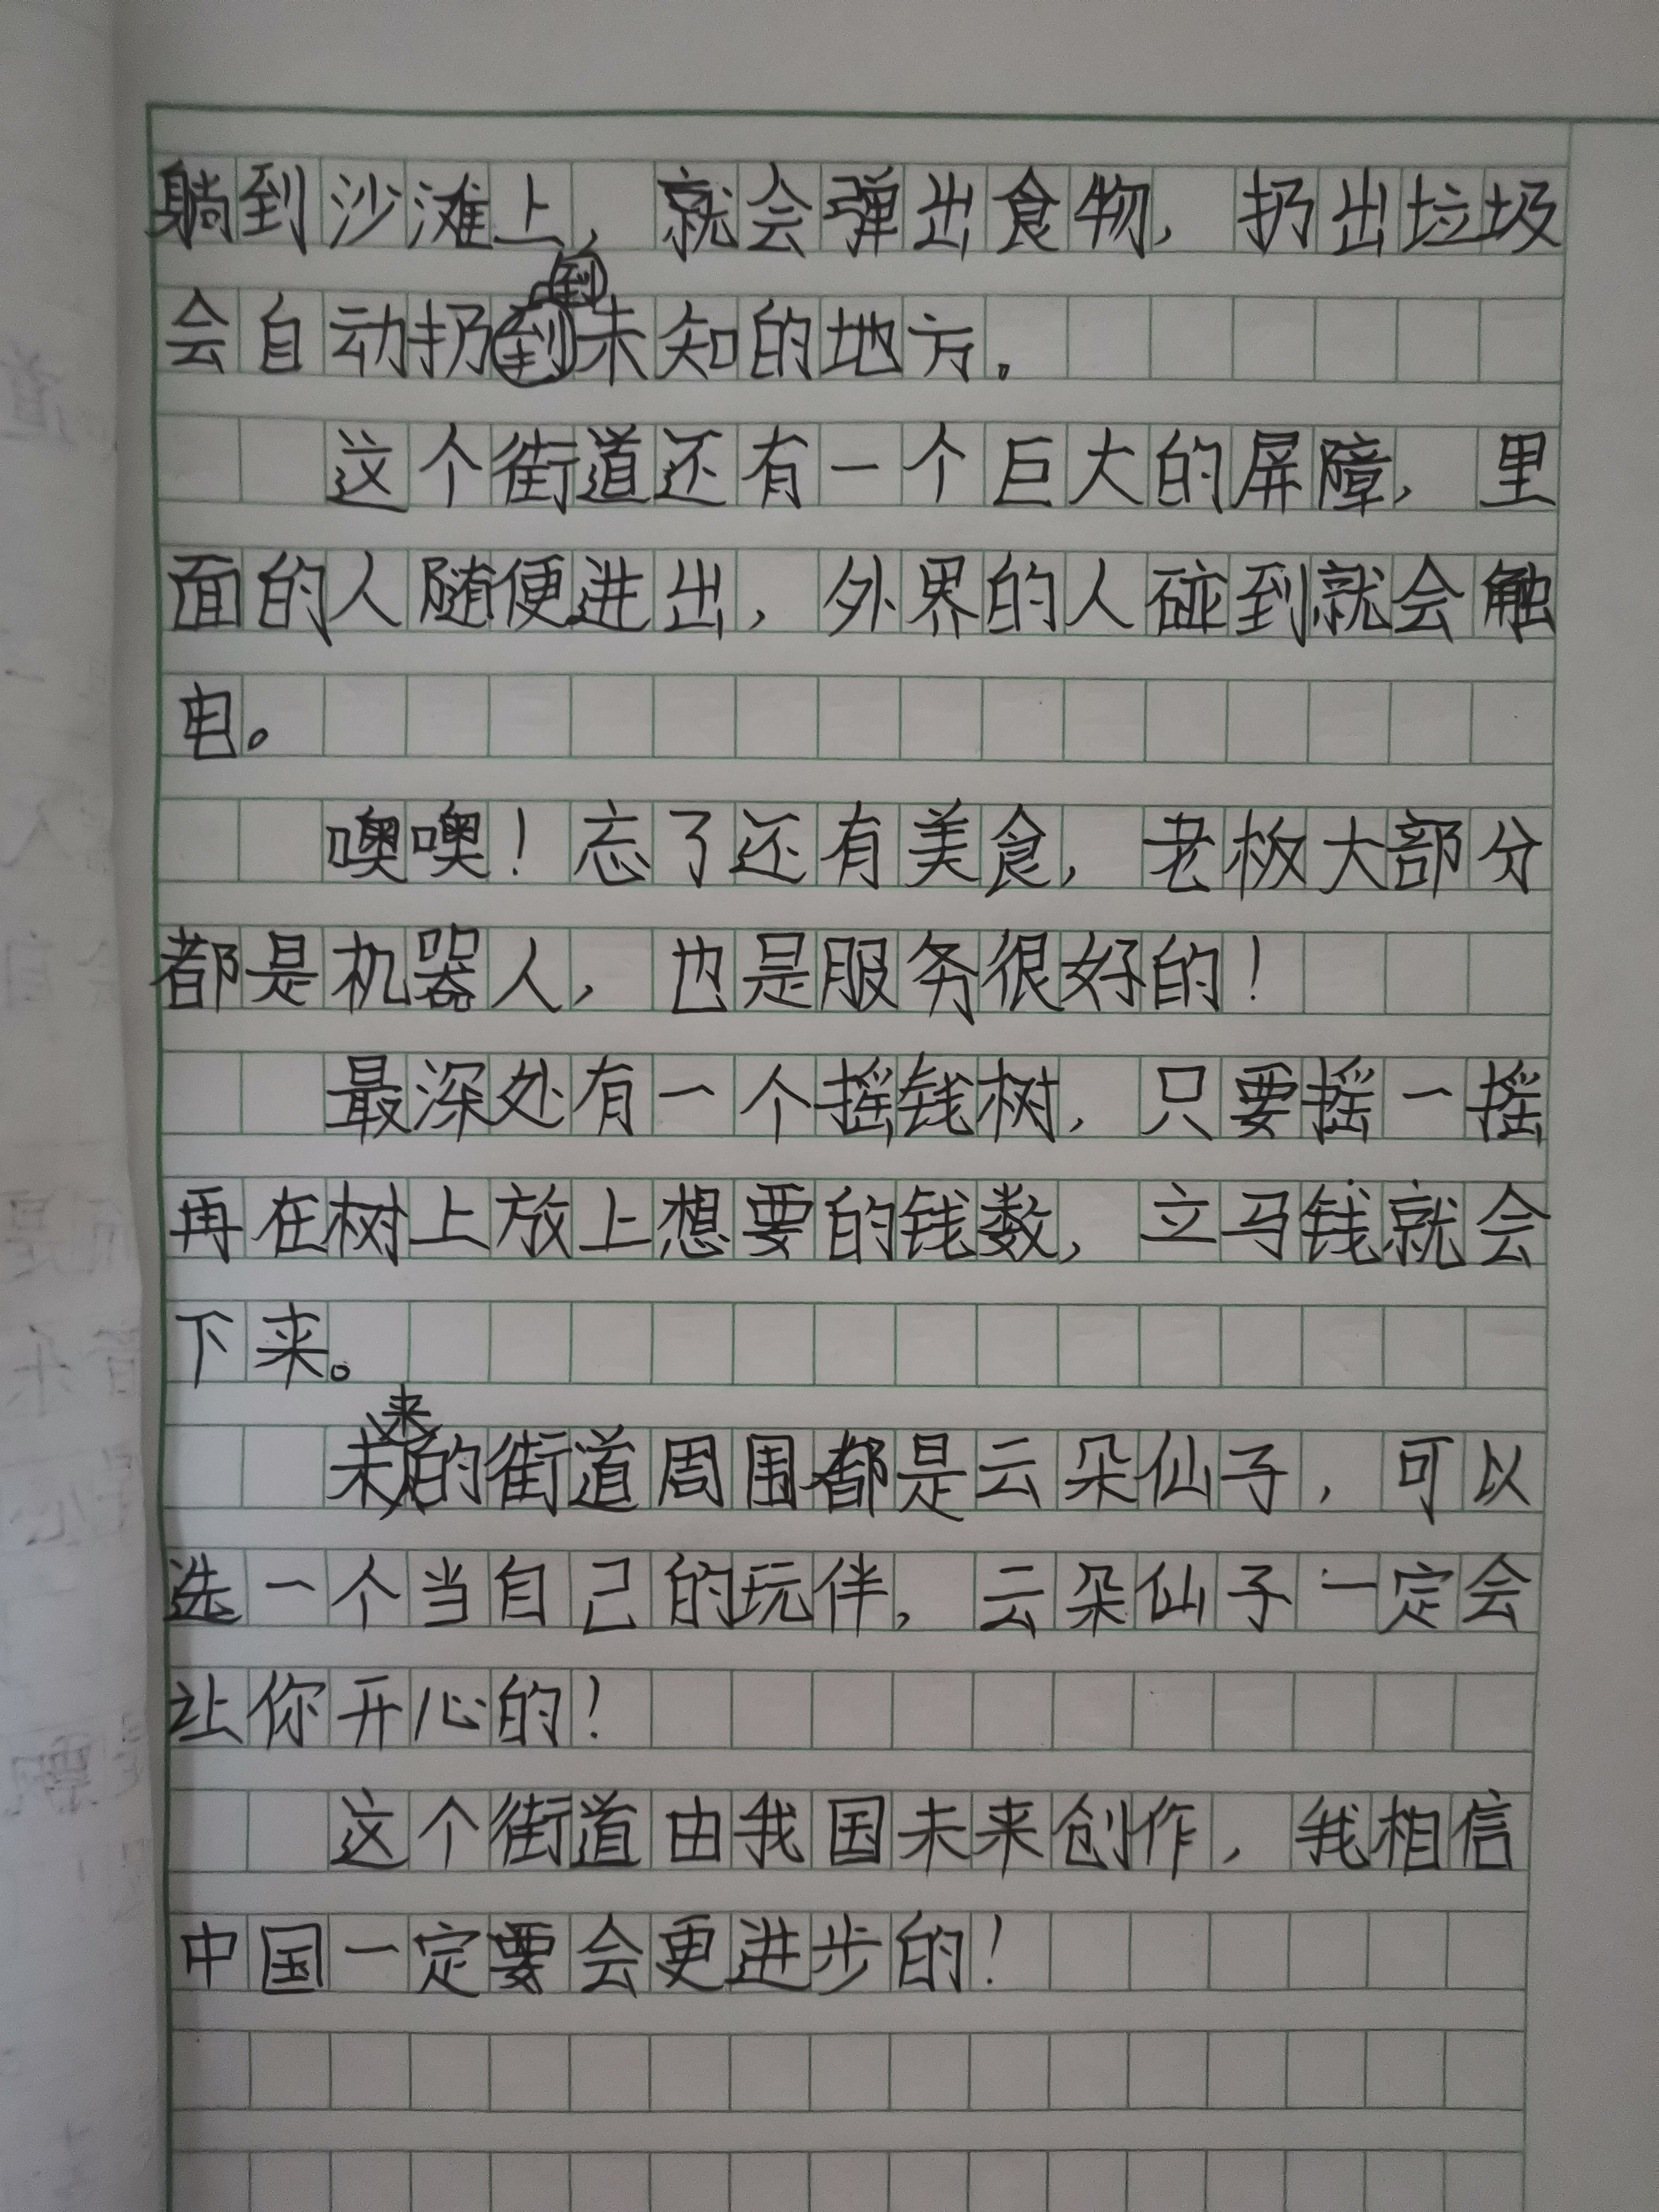 躺到沙滩上，就会弹出食物，扔出垃圾
会自动扔到未知的地方。
这个街道还有一个巨大的屏障，里
面的人随便进出，外界的人碰到就会触
电。
噢噢！忘了还有美食，老板大部分
都是机器人，也是服务很好的！
最深处有一个摇钱树，只要摇一摇
再在树上放上想要的钱数，立马钱就会
下来。
未来的街道周围都是云朵仙子，可以
选一个当自己的玩伴，云朵仙子一定会
让你开心的！
这个街道由我国未来创作，我相信
中国一定要会更进步的！